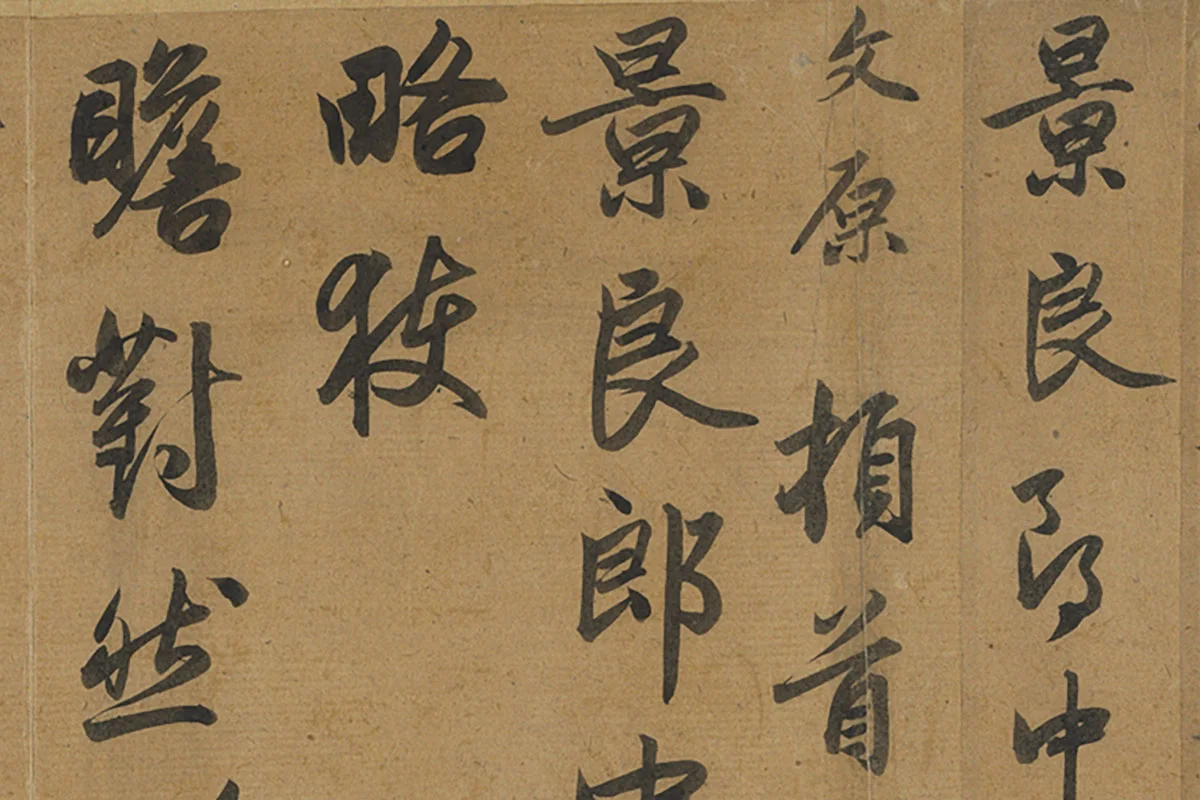 景良郎中
文原頓首
景良郎中
略
瞻對然